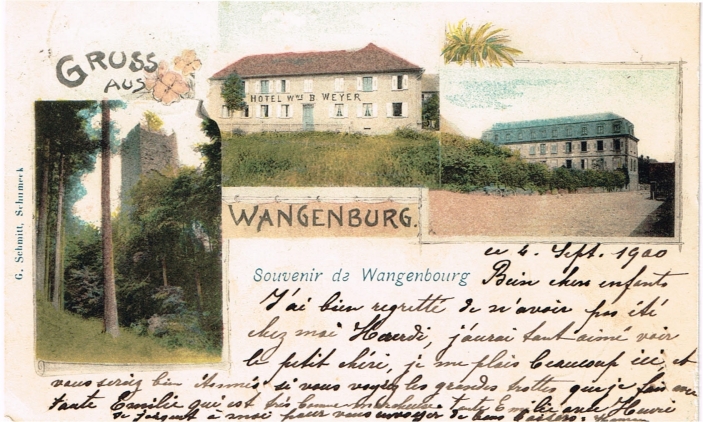 GRUSS
AUS
HOTEL Wwe B. WEYER
WANGENBURG.
G. Schmitt, Schirmeck
Souvenir de Wangenbourg
ce 4. Sept. 1900
Bien chers enfants
J'ai bien regretté de n'avoir pas été
chez moi j'aurai tant aimé voir
le petit chéri, je me plais beaucoup ici, et
vous seriez bien si vous voyez les grandes trottes que je fais avec
tante Emilie qui est très bonne marcheuse tante Emilie avec Henri
se joignent à moi pour vous envoyer de bons baisers.